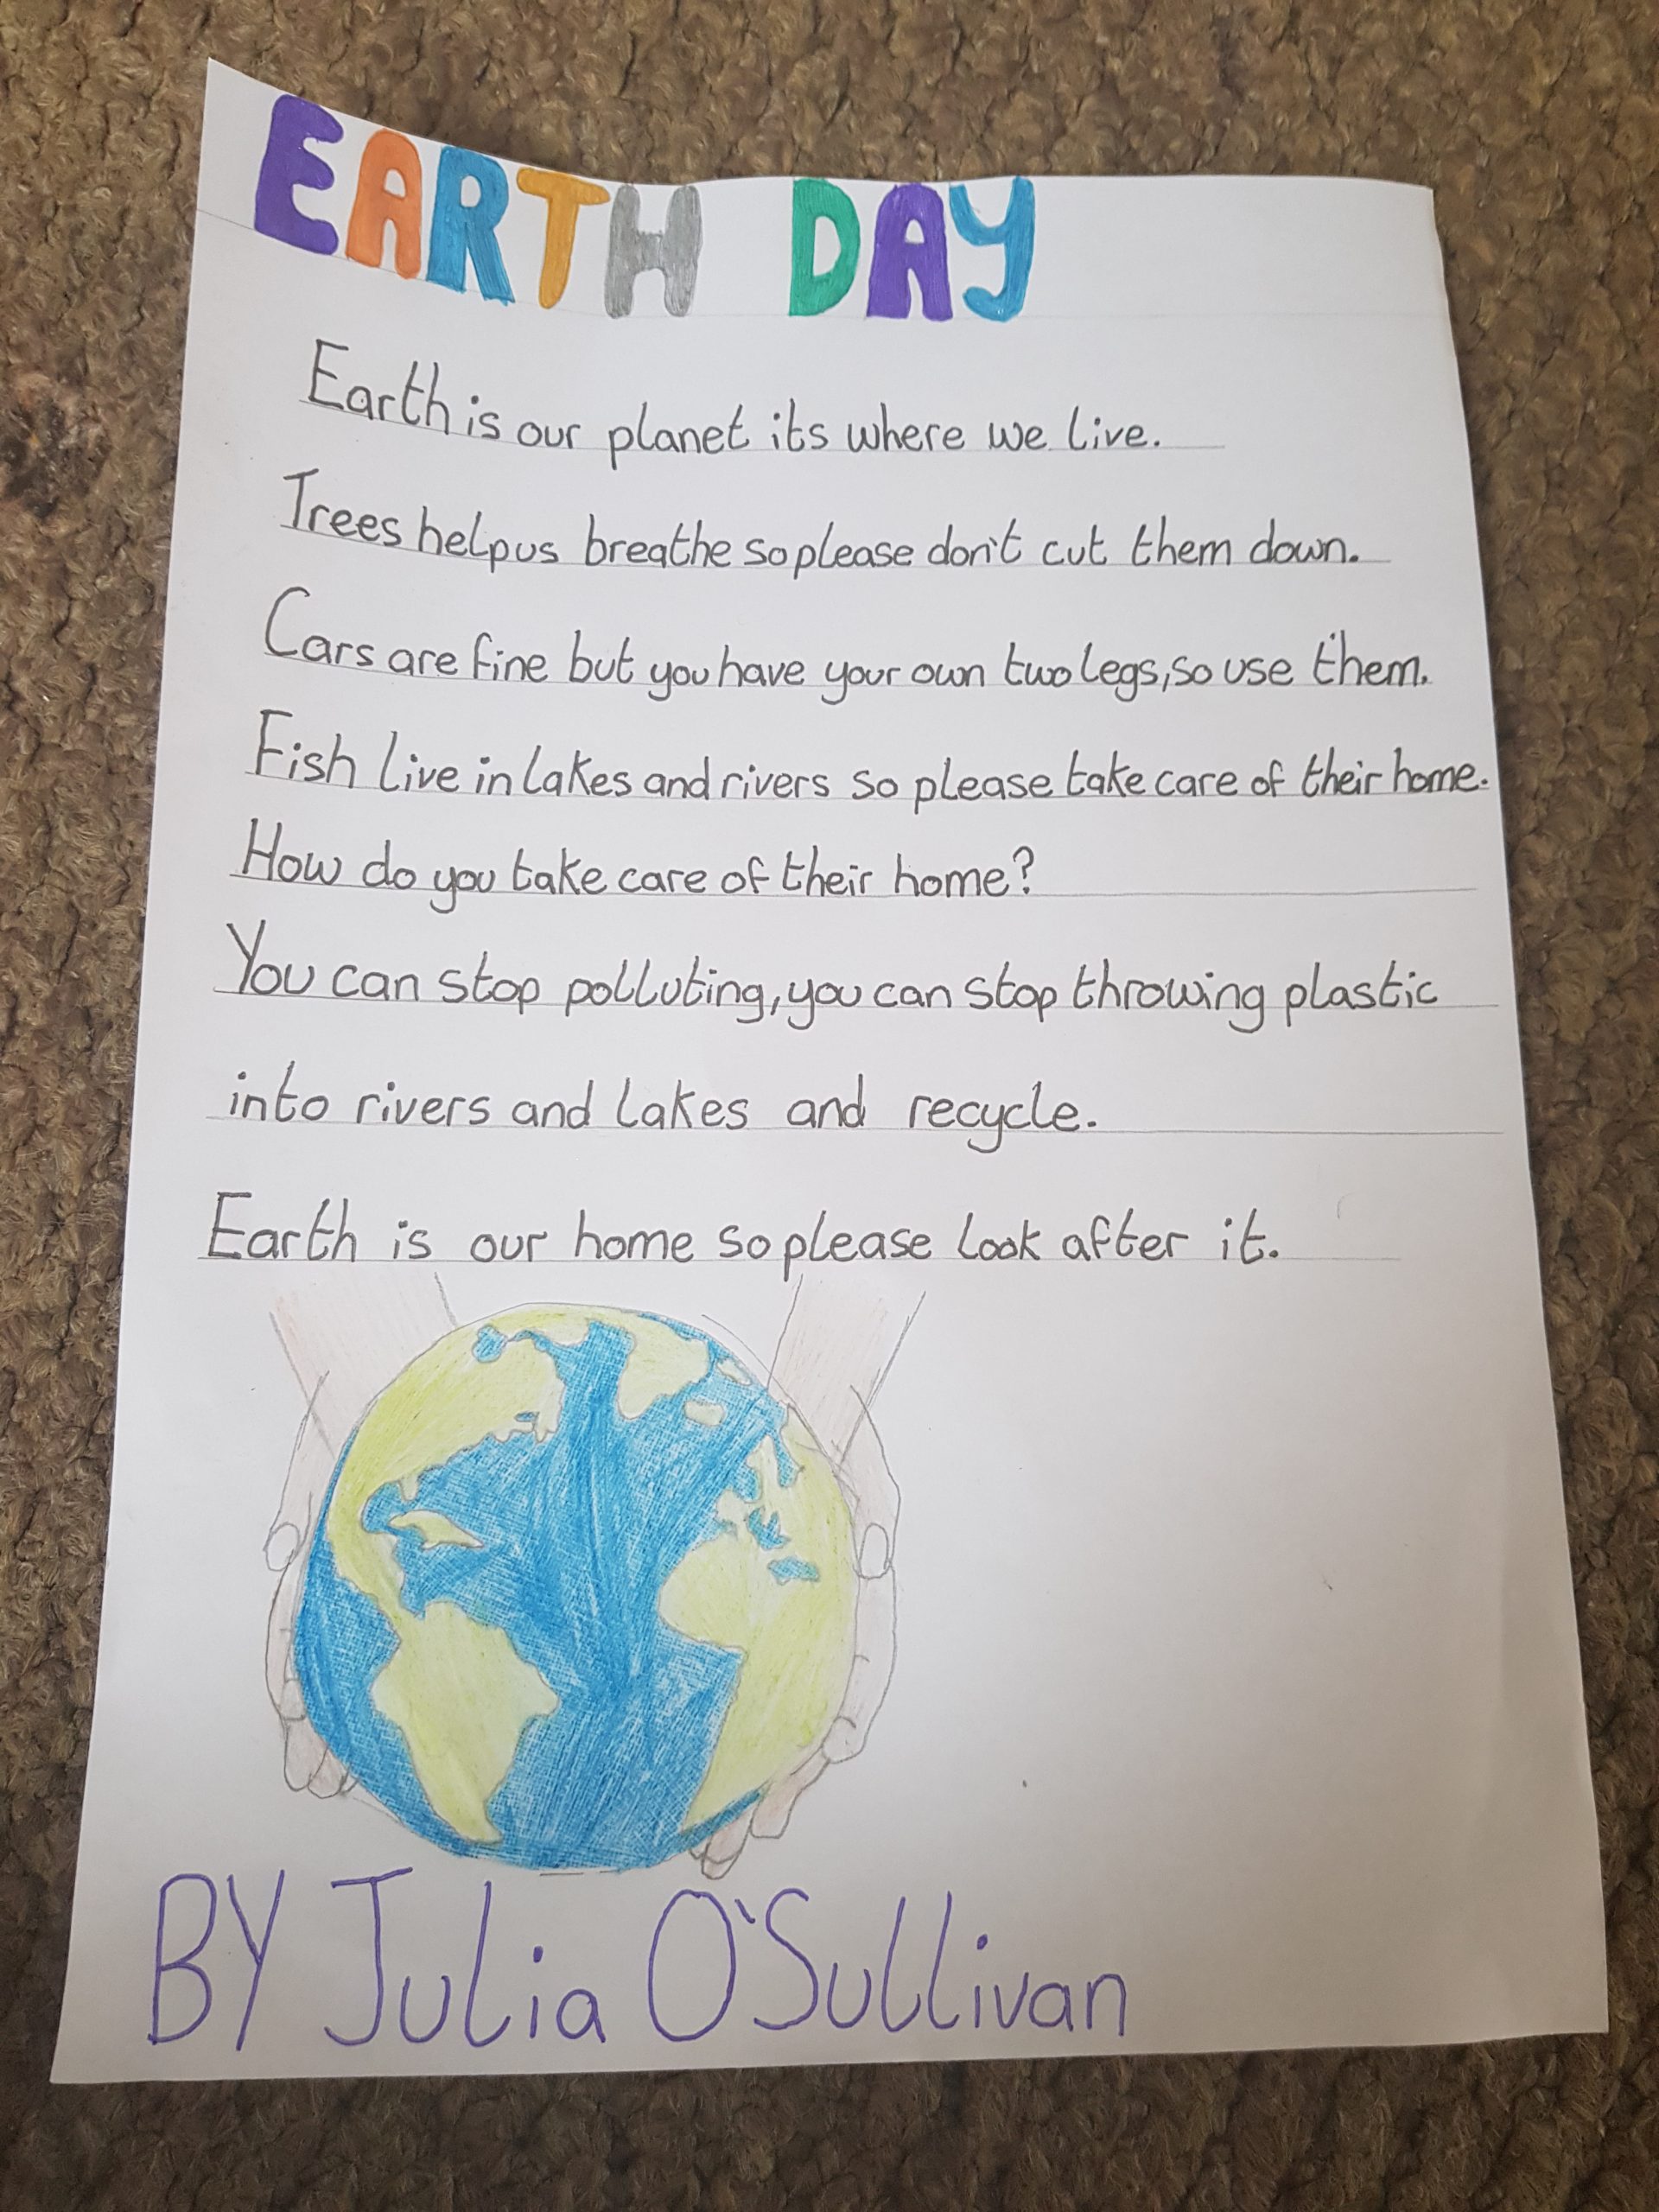 EARTH DAY
Earth is our planet its where we live.
Trees help us breathe so please don't cut them down.
Cars are fine but you have your own two legs, so use them.
Fish live in lakes and rivers so please take care of their home.
How do you take care of their home?
You can stop polluting, you can stop throwing plastic
into rivers and lakes and recycle.
Earth is our home so please look after it.
BY Julia O'Sullivan